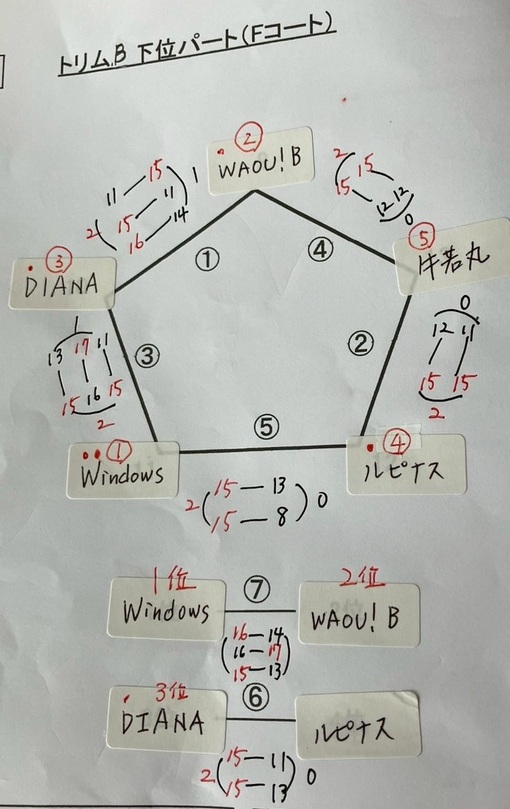 トリム.B 下位パート(Fコート)
②
WAOU! B
11 — 15
15 — 11
16 — 14
2 1
①
2 0
15 — 12
15 — 12
④
⑤
牛若丸
③
DIANA
1
13 17 11
15 16 15
2
③
②
0
12 11
15 15
2
①
Windows
⑤
④
ルピナス
2 ( 15 — 13 ) 0
15 — 8
1位 ⑦ 2位
Windows WAOU! B
16 — 14
16 — 17
15 — 13
3位 ⑥
DIANA ルピナス
2 ( 15 — 11 ) 0
15 — 13